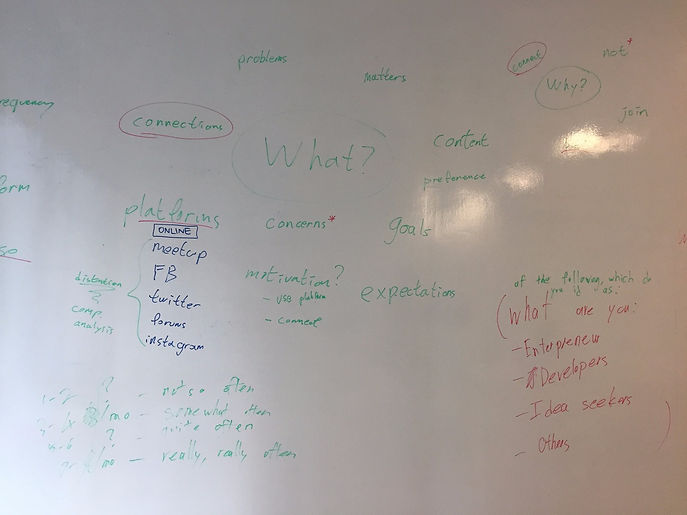 problems
matters
connect
not*
Why?
requency
connections
What?
content
join
preference
orm
platforms
ONLINE
concerns*
goals
meetup
FB
twitter
forums
instagram
motivation?
- use platform
- connect
expectations
?
comp.
analysis
of the following, which do
you id as:
(What are you:
- Enterpreneur
- Developers
- Idea seekers
- Others
)
1-2 ? - not so often
/mo - somewhat often
? - quite often
/mo - really, really often